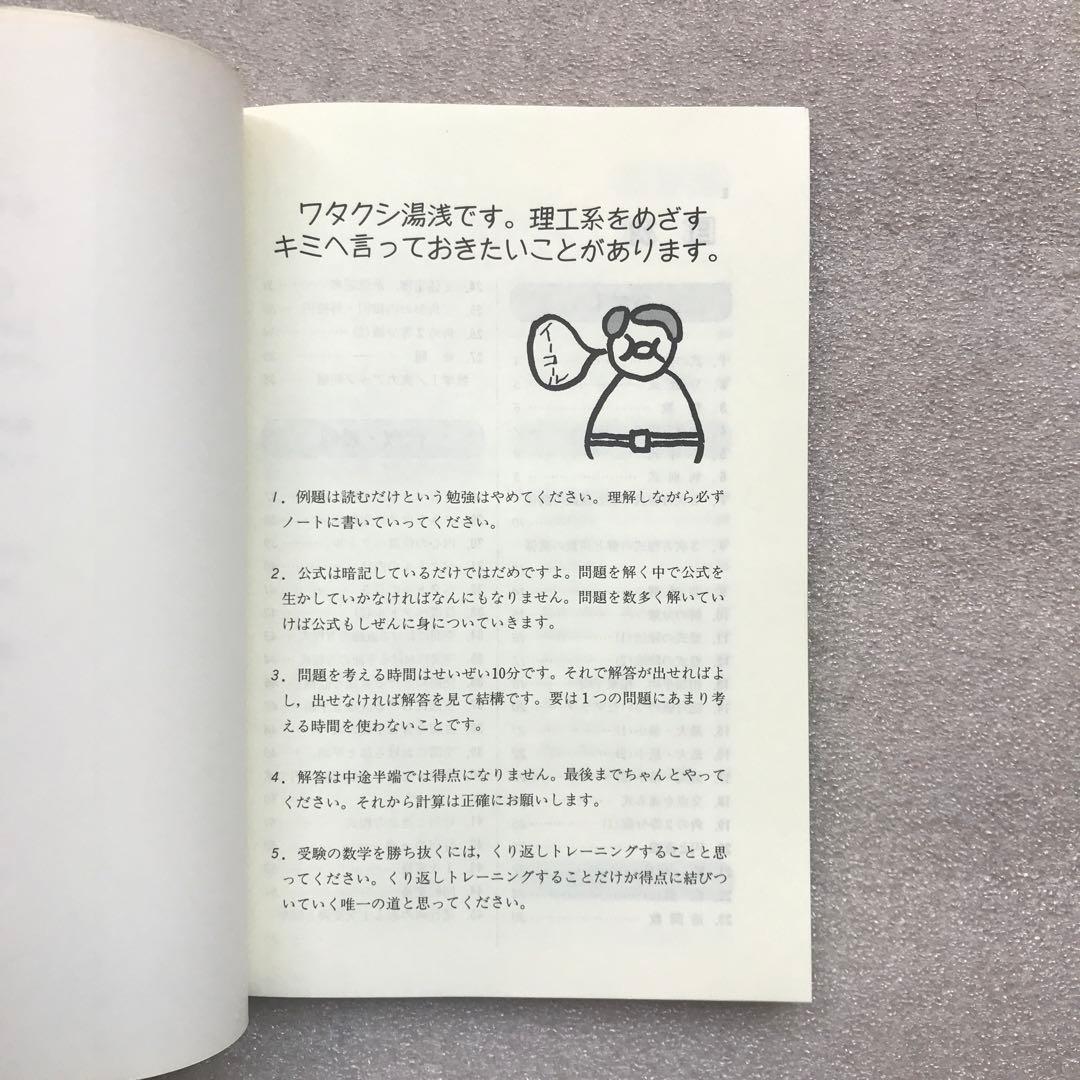 ワタクシ湯浅です。理工系をめざす
キミへ言っておきたいことがあります。
イーコール
1．例題は読むだけという勉強はやめてください。理解しながら必ず
ノートに書いていってください。
2．公式は暗記しているだけではだめですよ。問題を解く中で公式を
生かしていかなければなんにもなりません。問題を数多く解いてい
けば公式もしぜんに身についていきます。
3．問題を考える時間はせいぜい10分です。それで解答が出せればよ
し，出せなければ解答を見て結構です。要は1つの問題にあまり考
える時間を使わないことです。
4．解答は中途半端では得点になりません。最後までちゃんとやって
ください。それから計算は正確にお願いします。
5．受験の数学を勝ち抜くには，くり返しトレーニングすることと思
ってください。くり返しトレーニングすることだけが得点に結びつ
いていく唯一の道と思ってください。